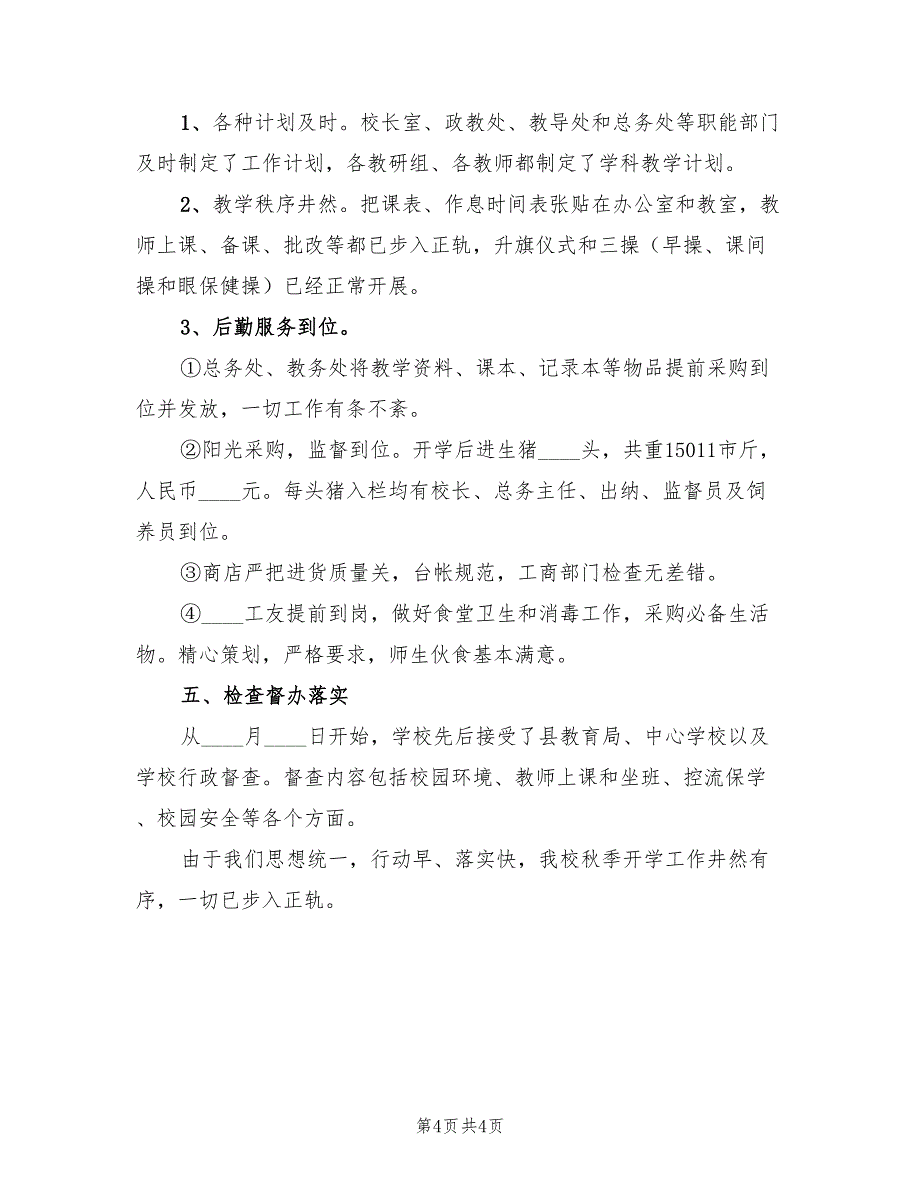 1、各种计划及时。校长室、政教处、教导处和总务处等职能部门
及时制定了工作计划，各教研组、各教师都制定了学科教学计划。
2、教学秩序井然。把课表、作息时间表张贴在办公室和教室，教
师上课、备课、批改等都已步入正轨，升旗仪式和三操（早操、课间
操和眼保健操）已经正常开展。
3、后勤服务到位。
①总务处、教务处将教学资料、课本、记录本等物品提前采购到
位并发放，一切工作有条不紊。
②阳光采购，监督到位。开学后进生猪____头，共重15011市斤，
人民币____元。每头猪入栏均有校长、总务主任、出纳、监督员及饲
养员到位。
③商店严把进货质量关，台帐规范，工商部门检查无差错。
④____工友提前到岗，做好食堂卫生和消毒工作，采购必备生活
物。精心策划，严格要求，师生伙食基本满意。
五、检查督办落实
从____月____日开始，学校先后接受了县教育局、中心学校以及
学校行政督查。督查内容包括校园环境、教师上课和坐班、控流保学
、校园安全等各个方面。
由于我们思想统一，行动早、落实快，我校秋季开学工作井然有
序，一切已步入正轨。
第4页 共4页